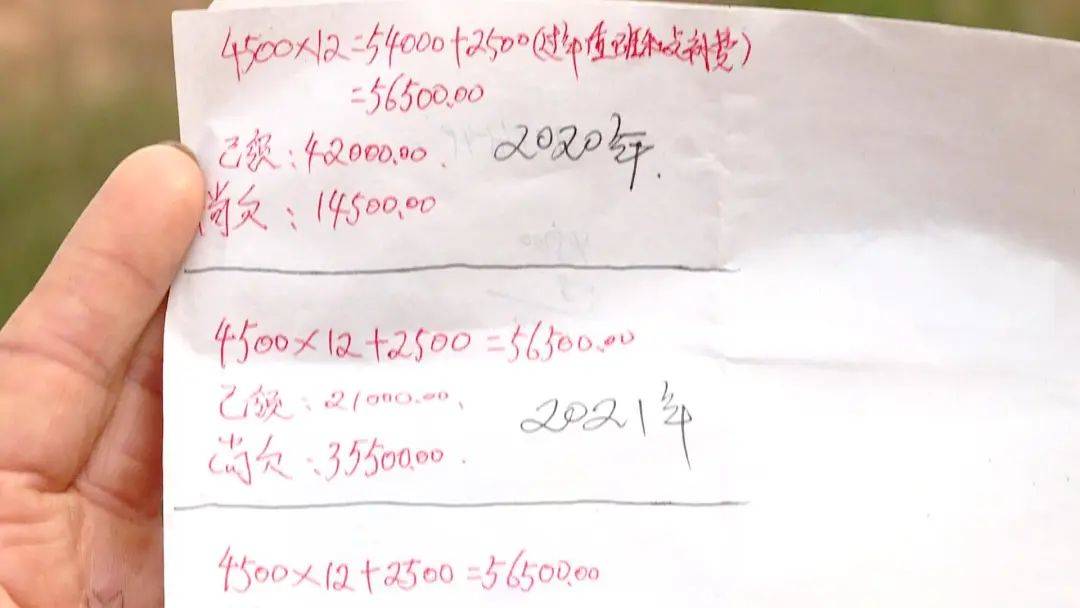 4500×12=54000+2500(过年值班和点补费)
=56500.00
已领:42000.00.
2020年.
尚欠:14500.00
4500×12+2500=56500.00
已领:21000.00.
2021年
尚欠:35500.00.
4500×12+2500=56500.00